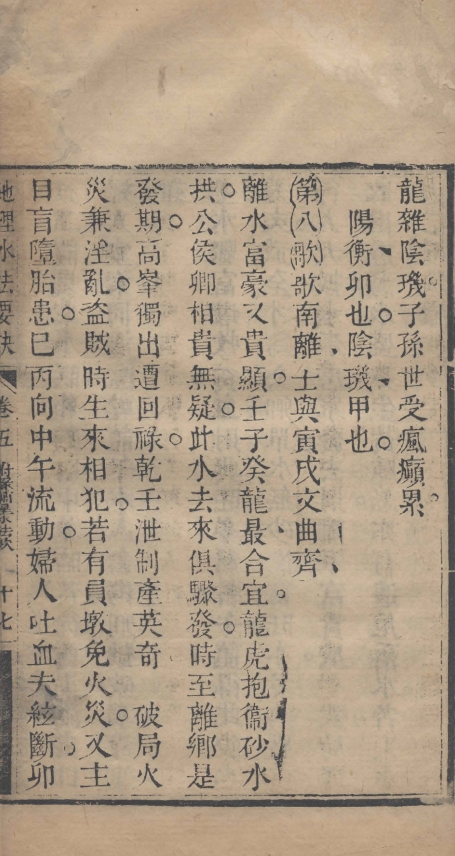 龍雜陰璣子孫世受瘋癲累
陽衡卯也陰璣甲也
第八歌歌南離士與寅戌文曲齊
離水富豪又貴顯壬子癸龍最合宜龍虎抱衞砂水
拱公侯卿相貴無疑此水去來俱驟發時至離鄉是
發期高峯獨出遭回祿乾壬泄制產英奇 破局火
災兼淫亂盜賊時生來相犯若有員墩免火災又主
目盲墮胎患巳丙向中午流動婦人吐血夫絃斷卯
地理水法要訣 卷五 十七